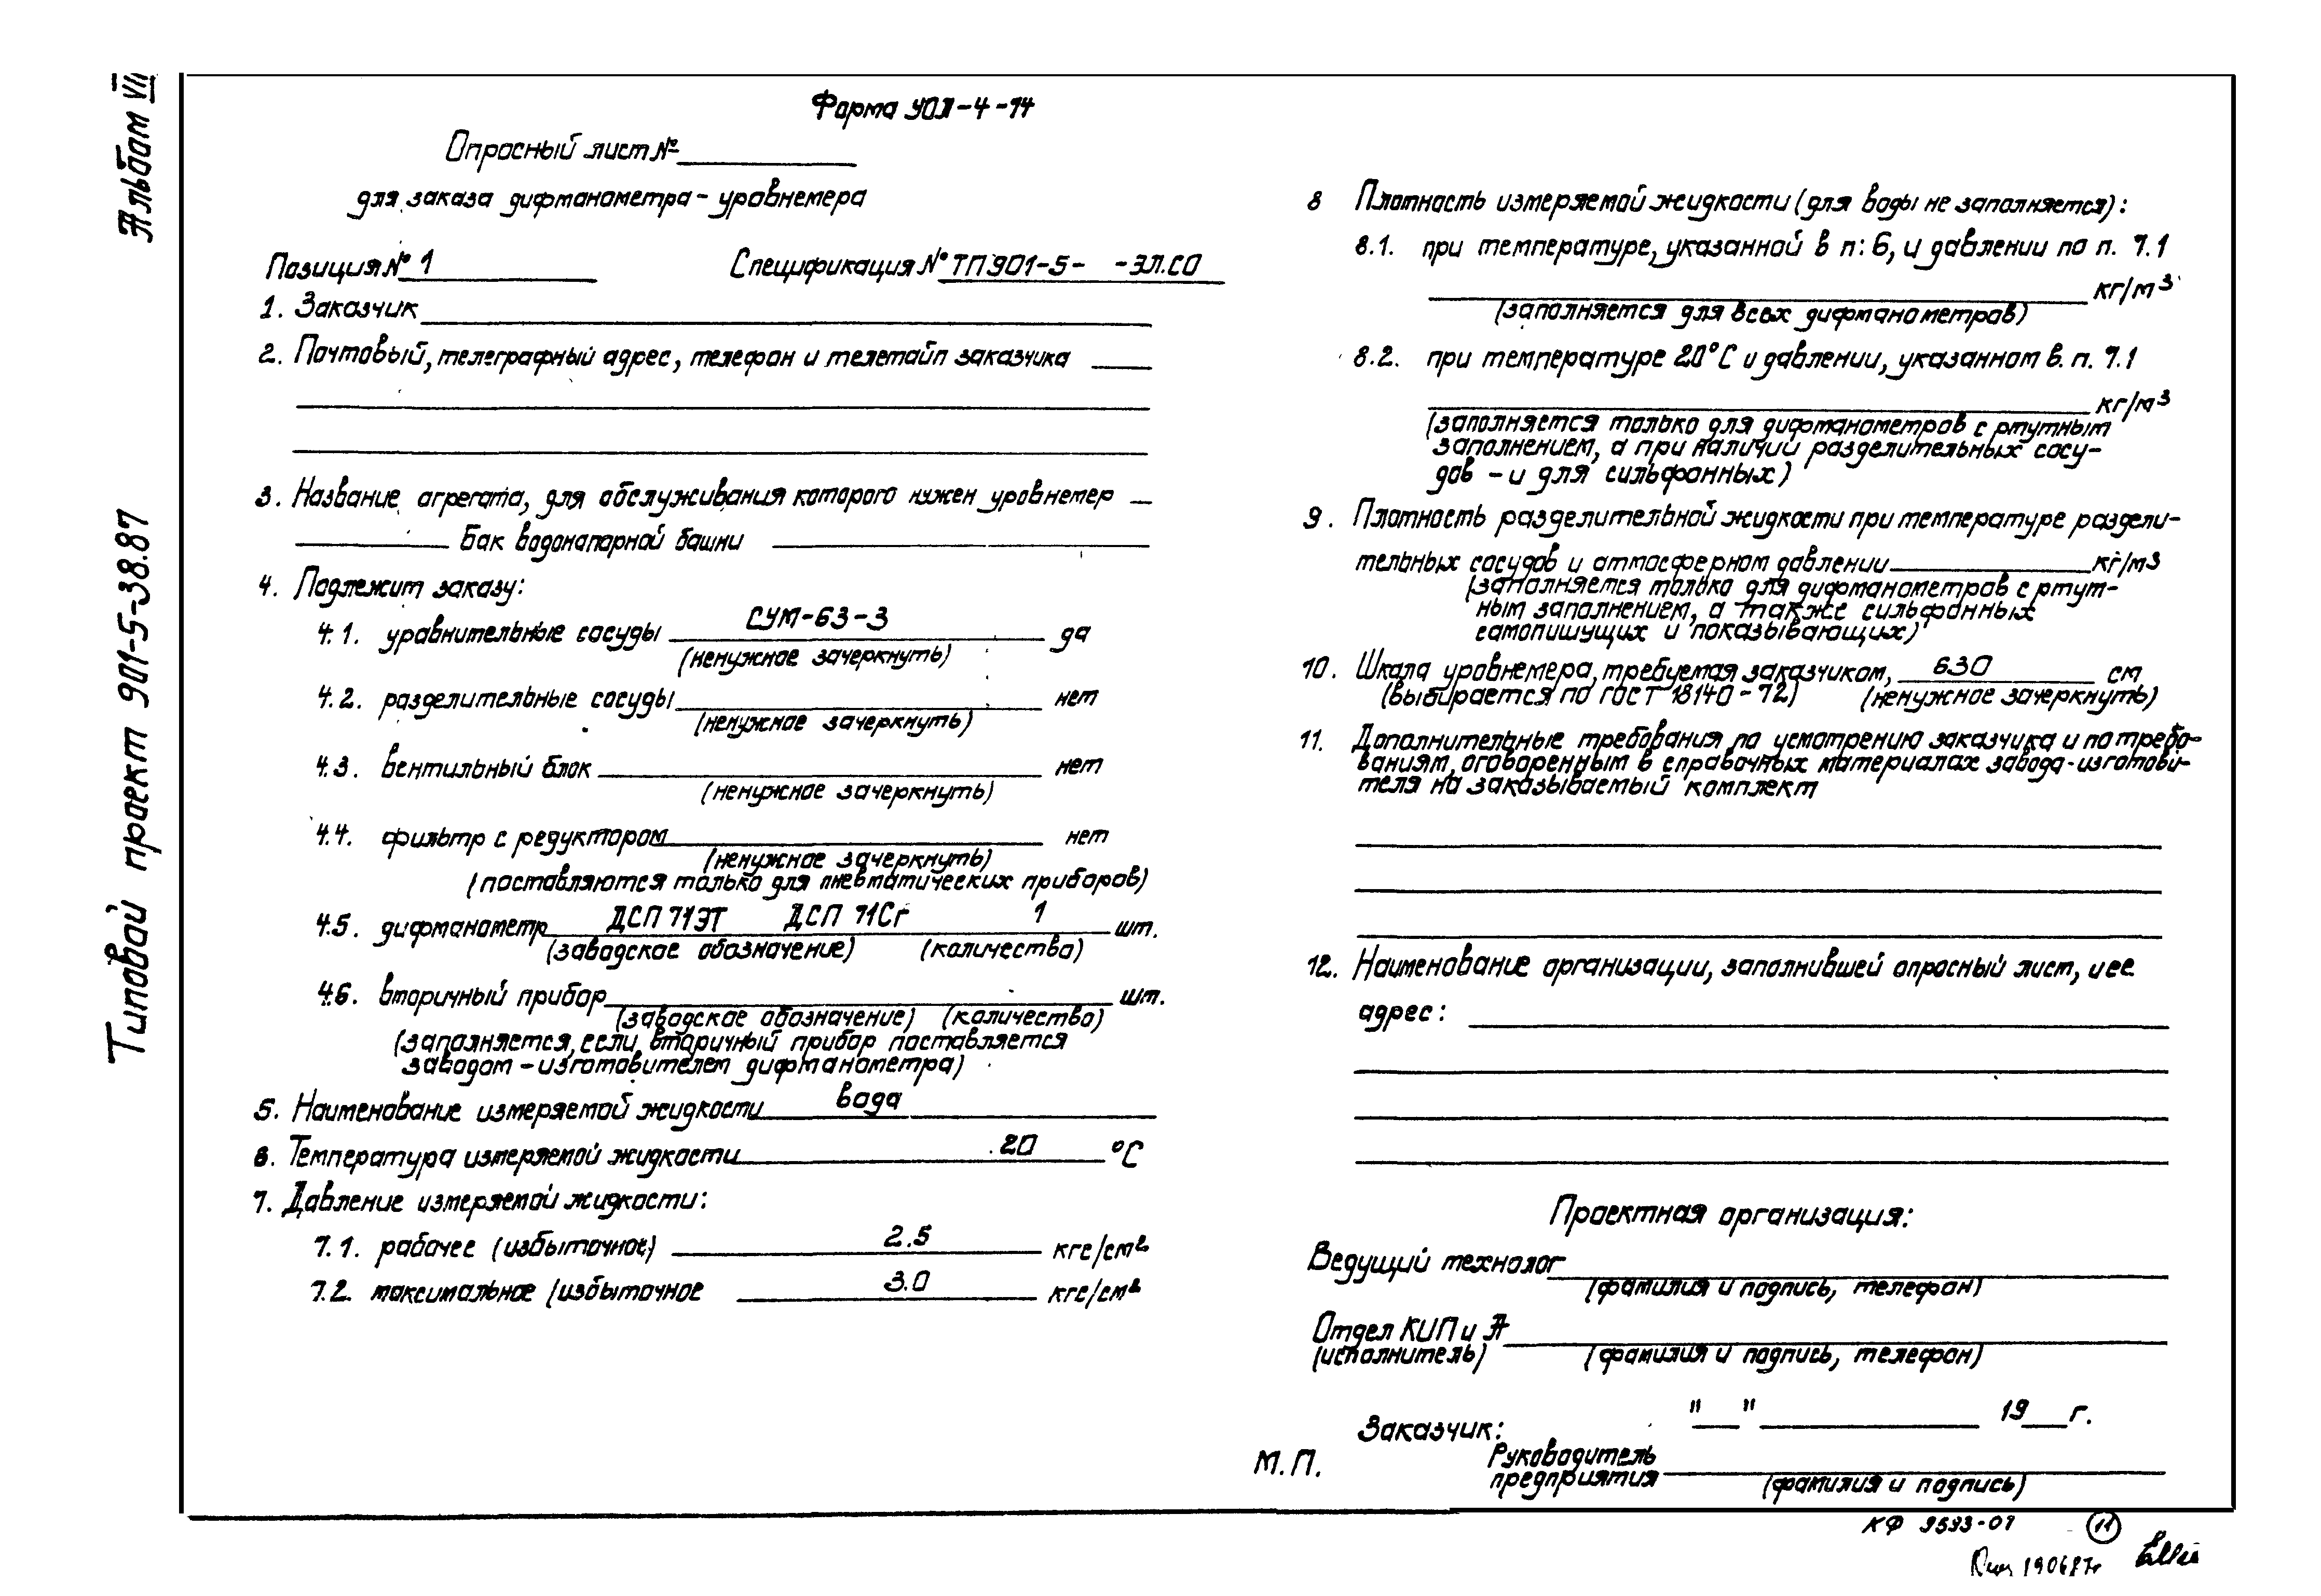 Альбом VII
Типовой проект 901-5-38.87
Форма УОЛ-4-74
Опросный лист №
для заказа дифманометра - уровнемера
Позиция № 1 Спецификация № ТП901-5- -ЭЛ.СО
1. Заказчик
2. Почтовый, телеграфный адрес, телефон и телетайп заказчика
3. Название агрегата, для обслуживания которого нужен уровнемер
Бак водонапорной башни
4. Подлежит заказу:
4.1. уравнительные сосуды СУМ-63-3 да
(ненужное зачеркнуть)
4.2. разделительные сосуды нет
(ненужное зачеркнуть)
4.3. вентильный блок нет
(ненужное зачеркнуть)
4.4. фильтр с редуктором нет
(ненужное зачеркнуть)
(поставляются только для пневматических приборов)
4.5. дифманометр ДСП 71ЭТ ДСП 71Сг 1 шт.
(заводское обозначение) (количество)
4.6. вторичный прибор шт.
(заводское обозначение) (количество)
(заполняется, если вторичный прибор поставляется
заводом - изготовителем дифманометра)
5. Наименование измеряемой жидкости вода
6. Температура измеряемой жидкости 20 °С
7. Давление измеряемой жидкости:
7.1. рабочее (избыточное) 2.5 кгс/см²
7.2. максимальное (избыточное 3.0 кгс/см²
8 Плотность измеряемой жидкости (для воды не заполняется):
8.1. при температуре, указанной в п: 6, и давлении по п. 7.1
кг/м³
(заполняется для всех дифманометров)
8.2. при температуре 20°С и давлении, указанном в. п. 7.1
кг/м³
(заполняется только для дифманометров с ртутным
заполнением, а при наличии разделительных сосу-
дов - и для сильфонных)
9. Плотность разделительной жидкости при температуре раздели-
тельных сосудов и атмосферном давлении кг/м3
(заполняется только для дифманометров с ртут-
ным заполнением, а также сильфонных
самопишущих и показывающих)
10. Шкала уровнемера, требуемая заказчиком, 630 см
(выбирается по ГОСТ 18140-72) (ненужное зачеркнуть)
11. Дополнительные требования по усмотрению заказчика и по требо-
ваниям, оговоренным в справочных материалах завода-изготови-
теля на заказываемый комплект
12. Наименование организации, заполнившей опросный лист, и ее
адрес:
Проектная организация:
Ведущий технолог
(фамилия и подпись, телефон)
Отдел КИП и А
(исполнитель) (фамилия и подпись, телефон)
Заказчик: " " 19 г.
М.П. Руководитель
предприятия
(фамилия и подпись)
КФ 9593-07 11